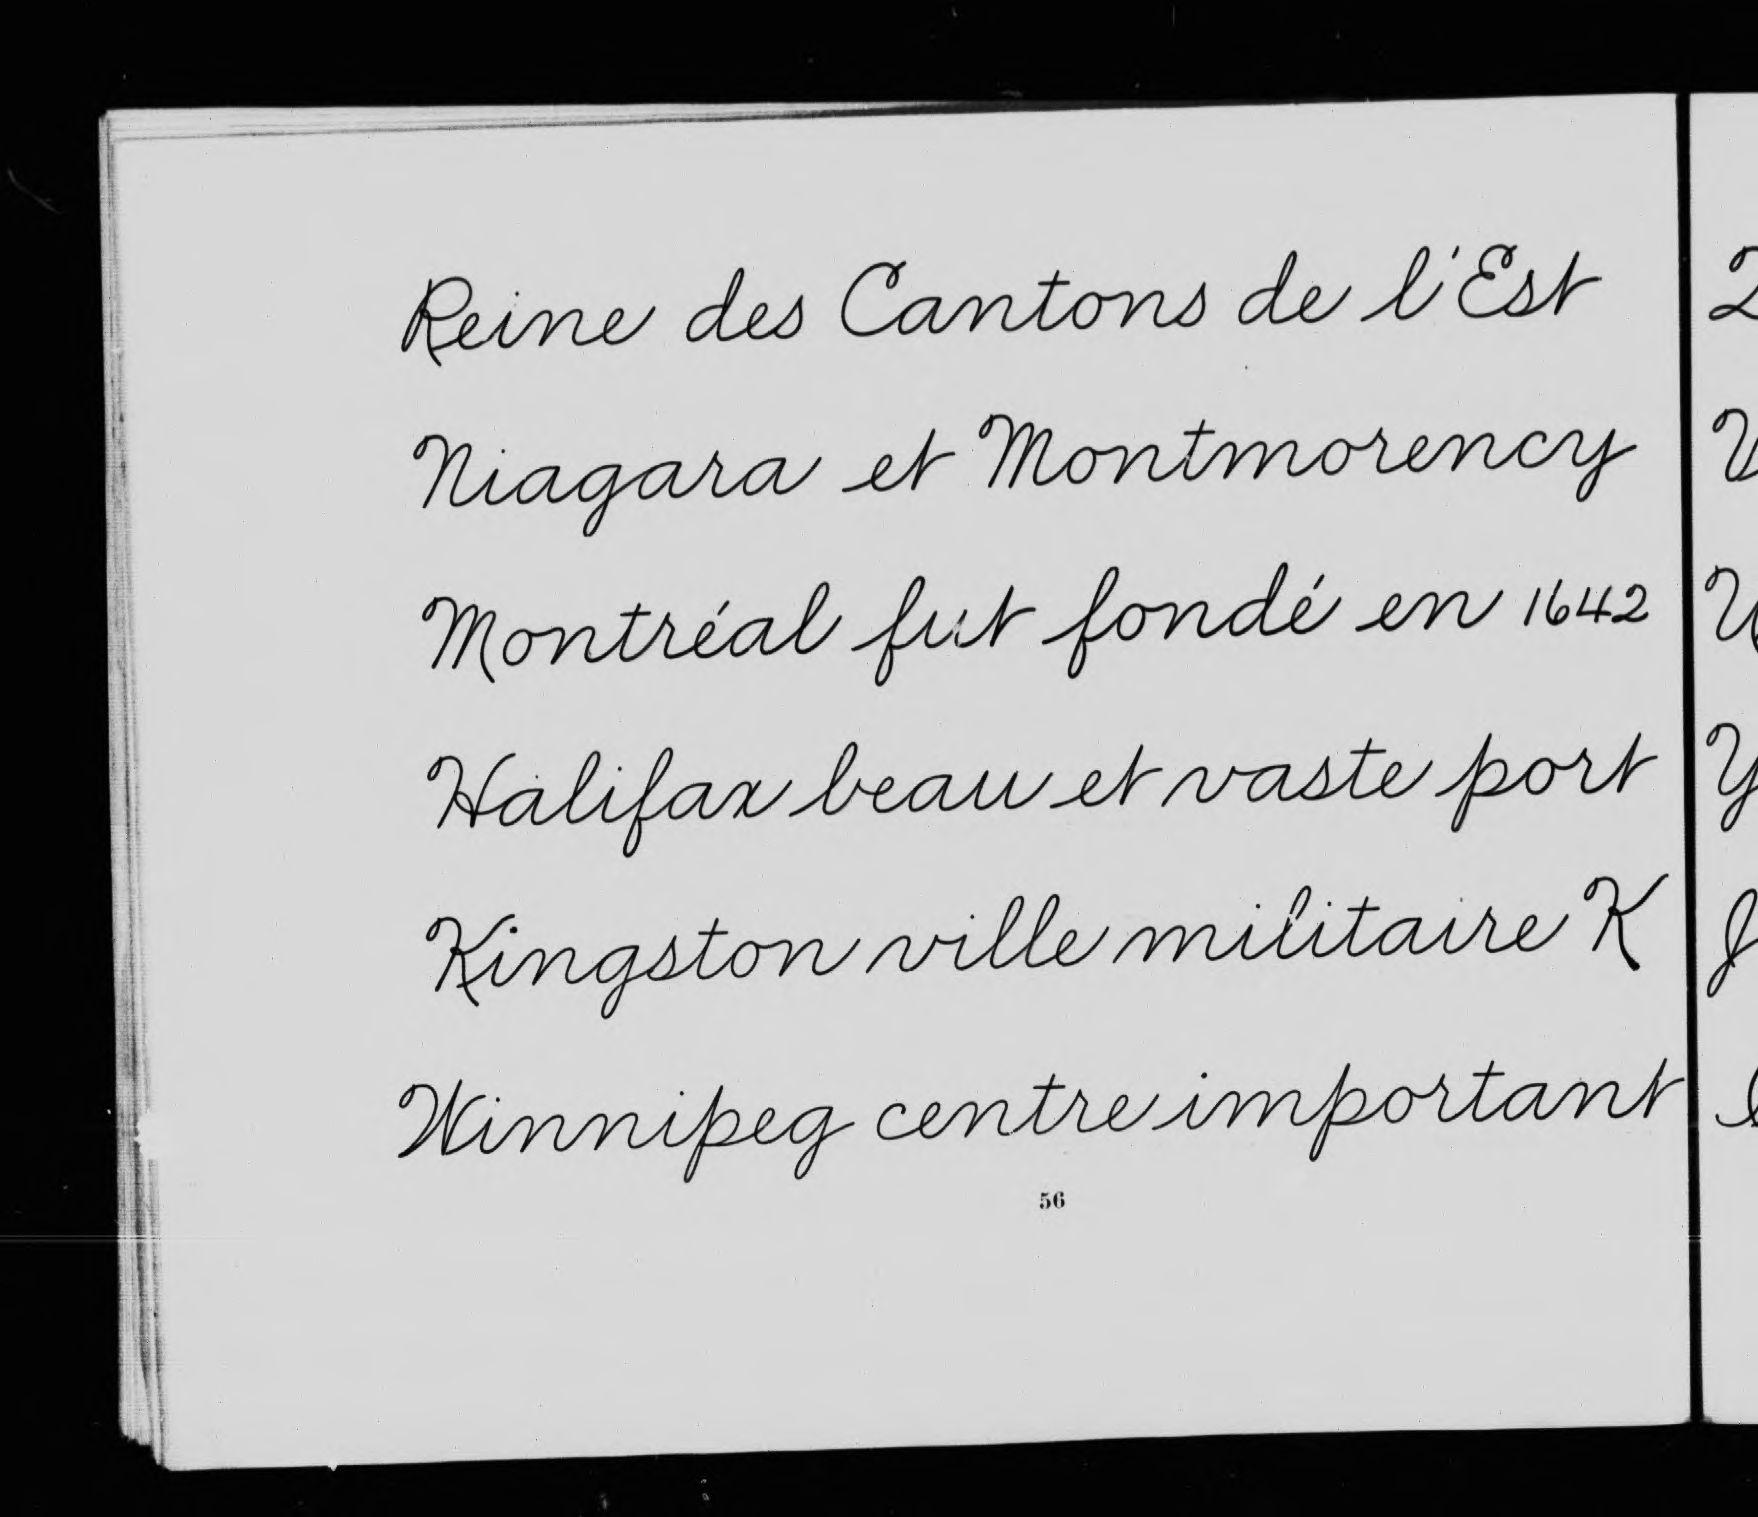 Reine des Cantons de l'Est
Niagara et Montmorency
Montréal fut fondé en 1642
Halifax beau et vaste port
Kingston ville militaire K
Winnipeg centre important
56